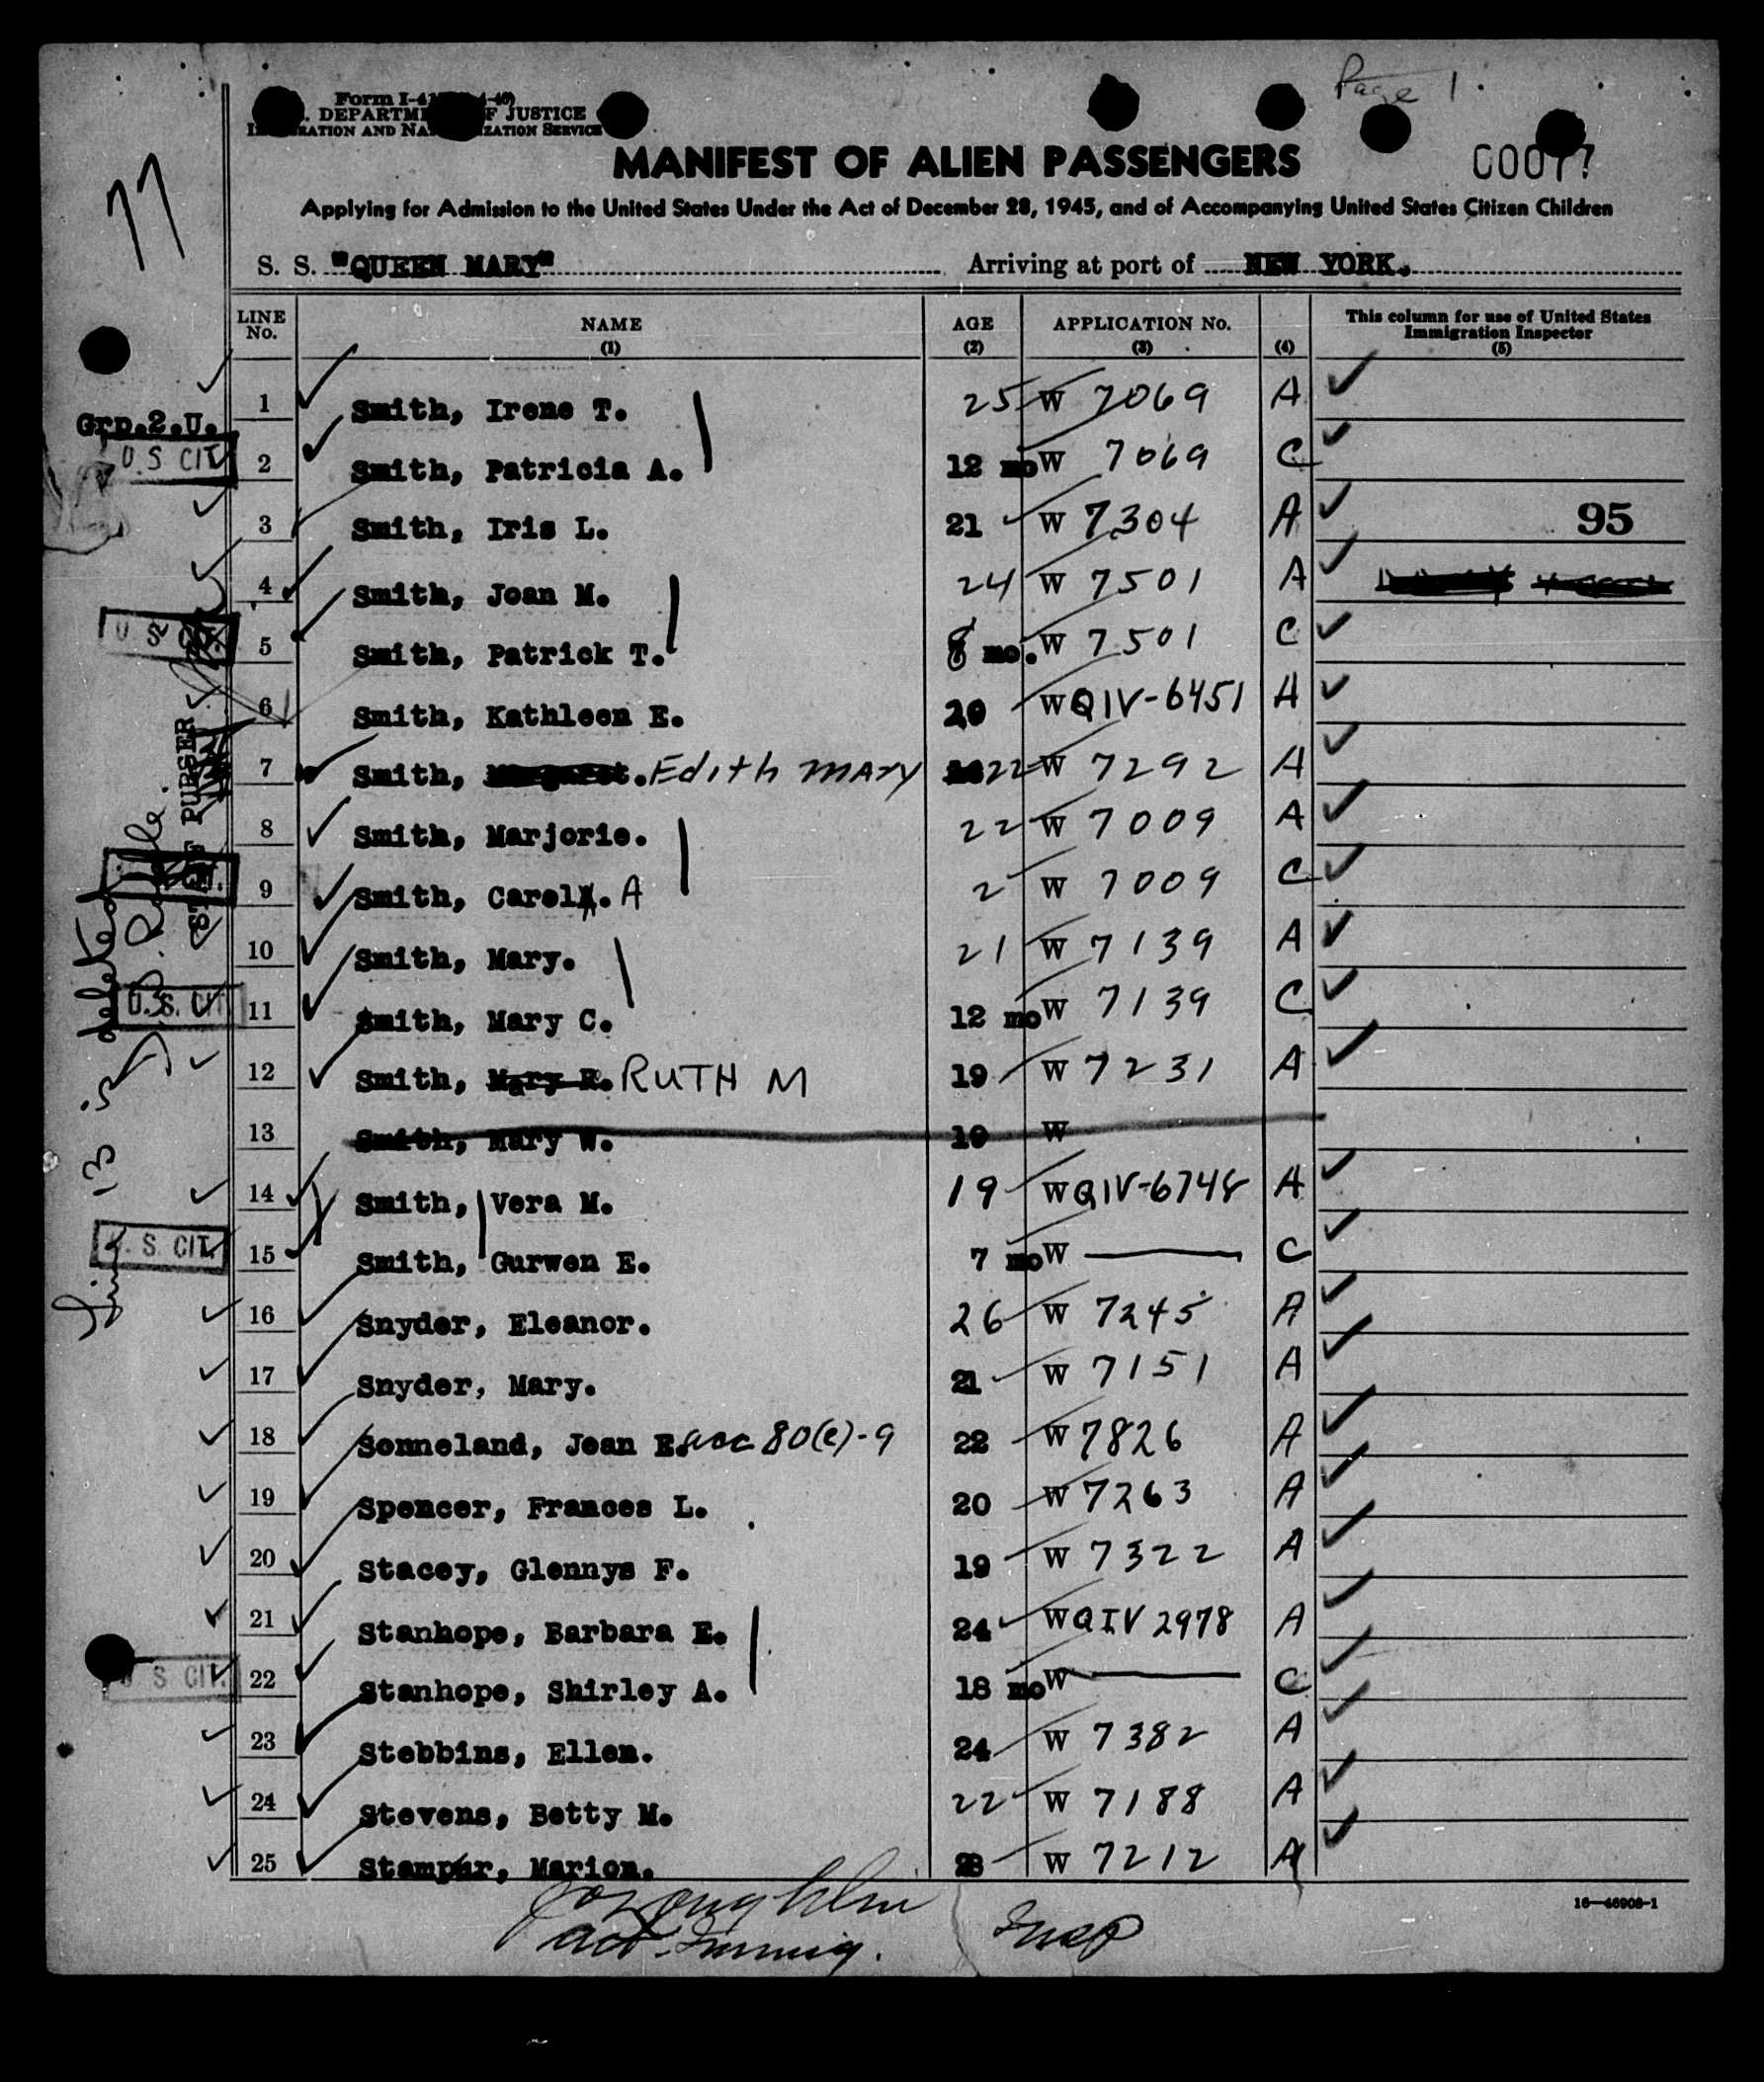 Page 1
Form I-41
DEPARTMENT OF JUSTICE
IMMIGRATION AND NATURALIZATION SERVICE
77
MANIFEST OF ALIEN PASSENGERS 00077
Applying for Admission to the United States Under the Act of December 28, 1945, and of Accompanying United States Citizen Children
S. S. "QUEEN MARY" Arriving at port of NEW YORK.
LINE No. NAME (1) AGE (2) APPLICATION No. (3) (4) This column for use of United States Immigration Inspector (5)
Grp.2.U.
1 Smith, Irene T. 25 W 7069 A
U.S CIT. 2 Smith, Patricia A. 12 mo W 7069 C
3 Smith, Iris L. 21 W 7304 A 95
4 Smith, Joan M. 24 W 7501 A
U S CIT. 5 Smith, Patrick T. 8 mo. W 7501 C
6 Smith, Kathleen E. 20 W QIV-6451 A
7 Smith, Margaret. Edith MARY 22 W 7292 A
8 Smith, Marjorie. 22 W 7009 A
9 Smith, Carol. A 2 W 7009 C
10 Smith, Mary. 21 W 7139 A
U.S. CIT 11 Smith, Mary C. 12 mo W 7139 C
12 Smith, Mary R. RUTH M 19 W 7231 A
13 Smith, Mary W. 19 W
14 Smith, Vera M. 19 W QIV-6748 A
U. S. CIT. 15 Smith, Gurwen E. 7 mo W C
16 Snyder, Eleanor. 26 W 7245 A
17 Snyder, Mary. 21 W 7151 A
18 Sonneland, Jean E. acc 80(e)-9 22 W 7826 A
19 Spencer, Frances L. 20 W 7263 A
20 Stacey, Glennys F. 19 W 7322 A
21 Stanhope, Barbara E. 24 W QIV 2978 A
U S CIT. 22 Stanhope, Shirley A. 18 mo W C
23 Stebbins, Ellen. 24 W 7382 A
24 Stevens, Betty M. 22 W 7188 A
25 Stamper, Marion. 23 W 7212 A
Line 13 is deleted
STAFF PURSER
16—46908-1
act. Immig. Insp